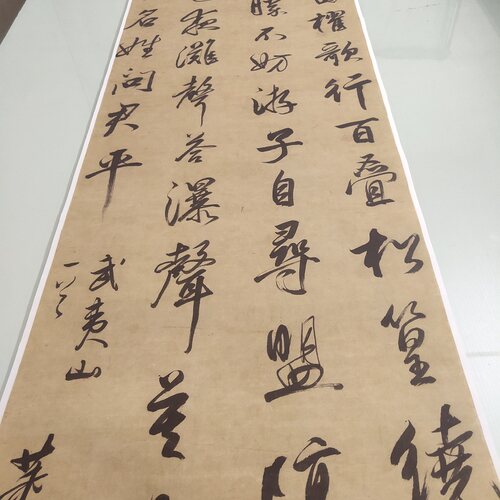 櫂歌行百疊松篁繞
不妨游子自尋盟
夜灘聲答瀑聲莫
名姓問君平
武夷山